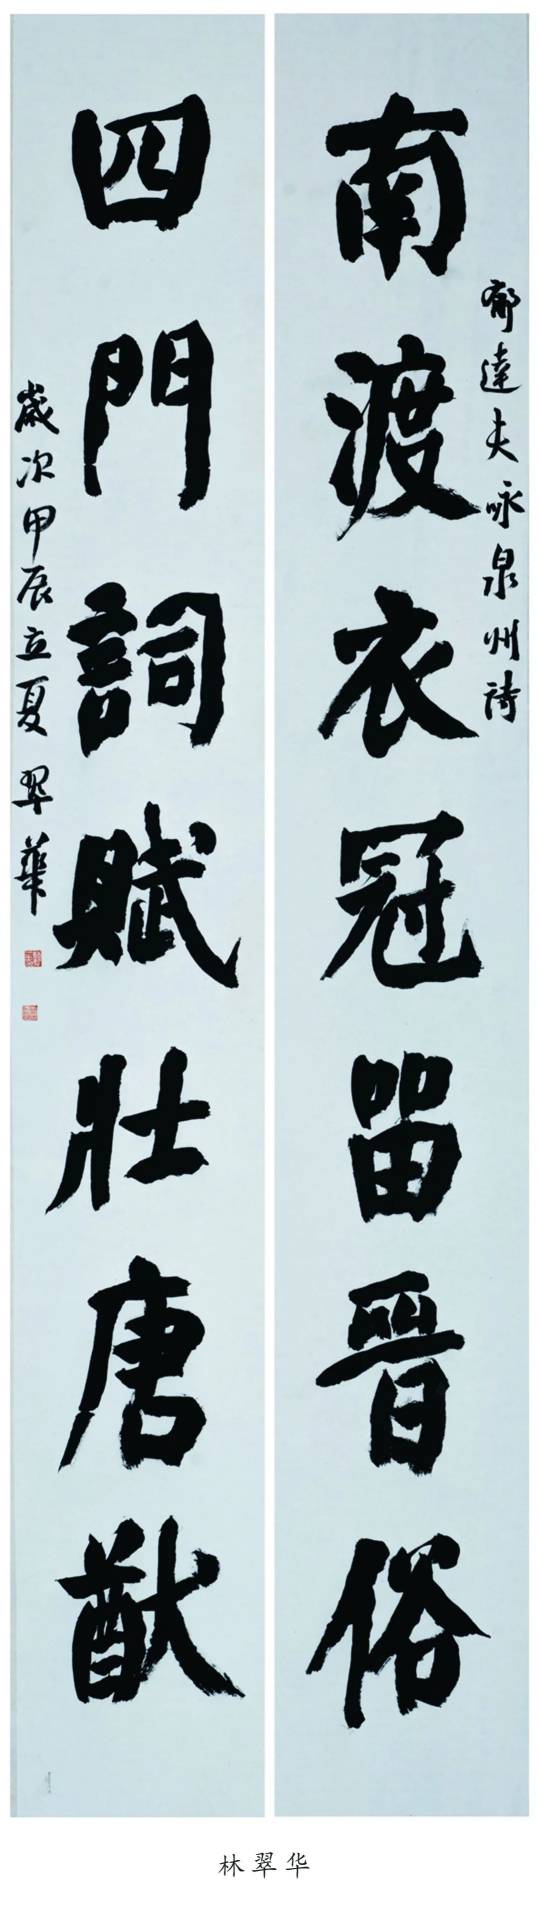 郁達夫咏泉州詩
南渡衣冠留晉俗
四門詞賦壯唐猷
歲次甲辰立夏 翠華
林翠华